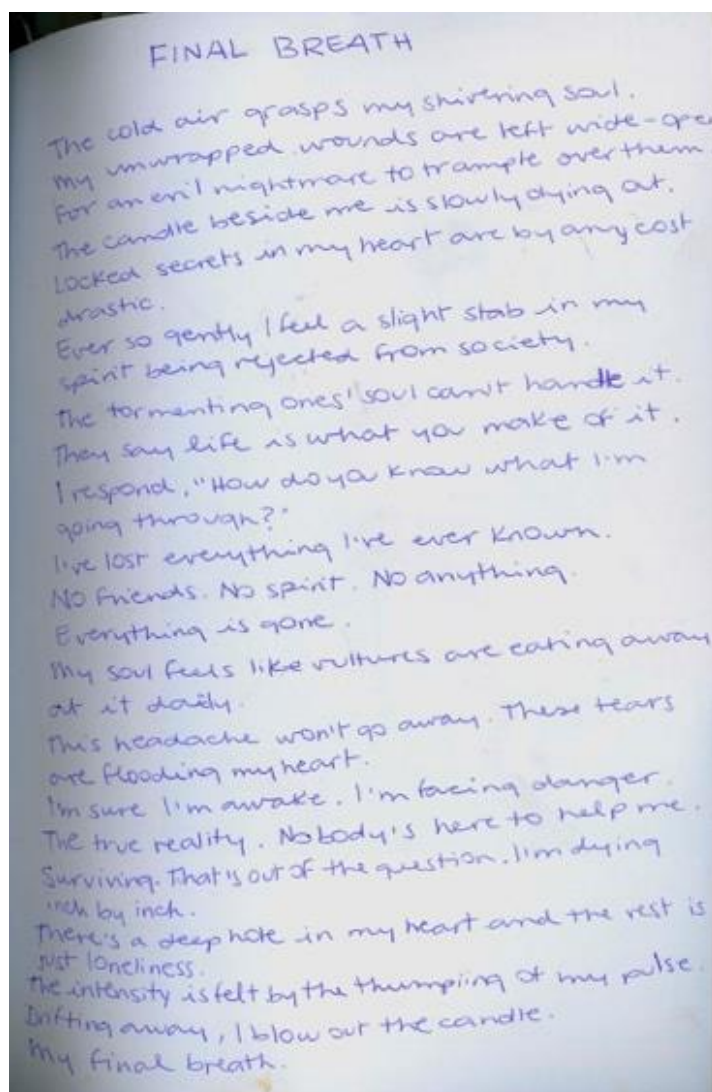 FINAL BREATH
The cold air grasps my shivering soul.
My unwrapped wounds are left wide-open
For an evil nightmare to trample over them
The candle beside me is slowly dying out.
Locked secrets in my heart are by any cost
drastic.
Ever so gently I feel a slight stab in my
spirit being rejected from society.
The tormenting ones' soul can't handle it.
They say life is what you make of it.
I respond, "How do you know what I'm
going through?"
I've lost everything I've ever known.
No friends. No spirit. No anything.
Everything is gone.
My soul feels like vultures are eating away
at it daily.
This headache won't go away. These tears
are flooding my heart.
I'm sure I'm awake. I'm facing danger.
The true reality. Nobody's here to help me.
Surviving. That's out of the question. I'm dying
inch by inch.
There's a deep hole in my heart and the rest is
just loneliness.
The intensity is felt by the thumpiing of my pulse.
Drifting away, I blow out the candle.
My final breath.